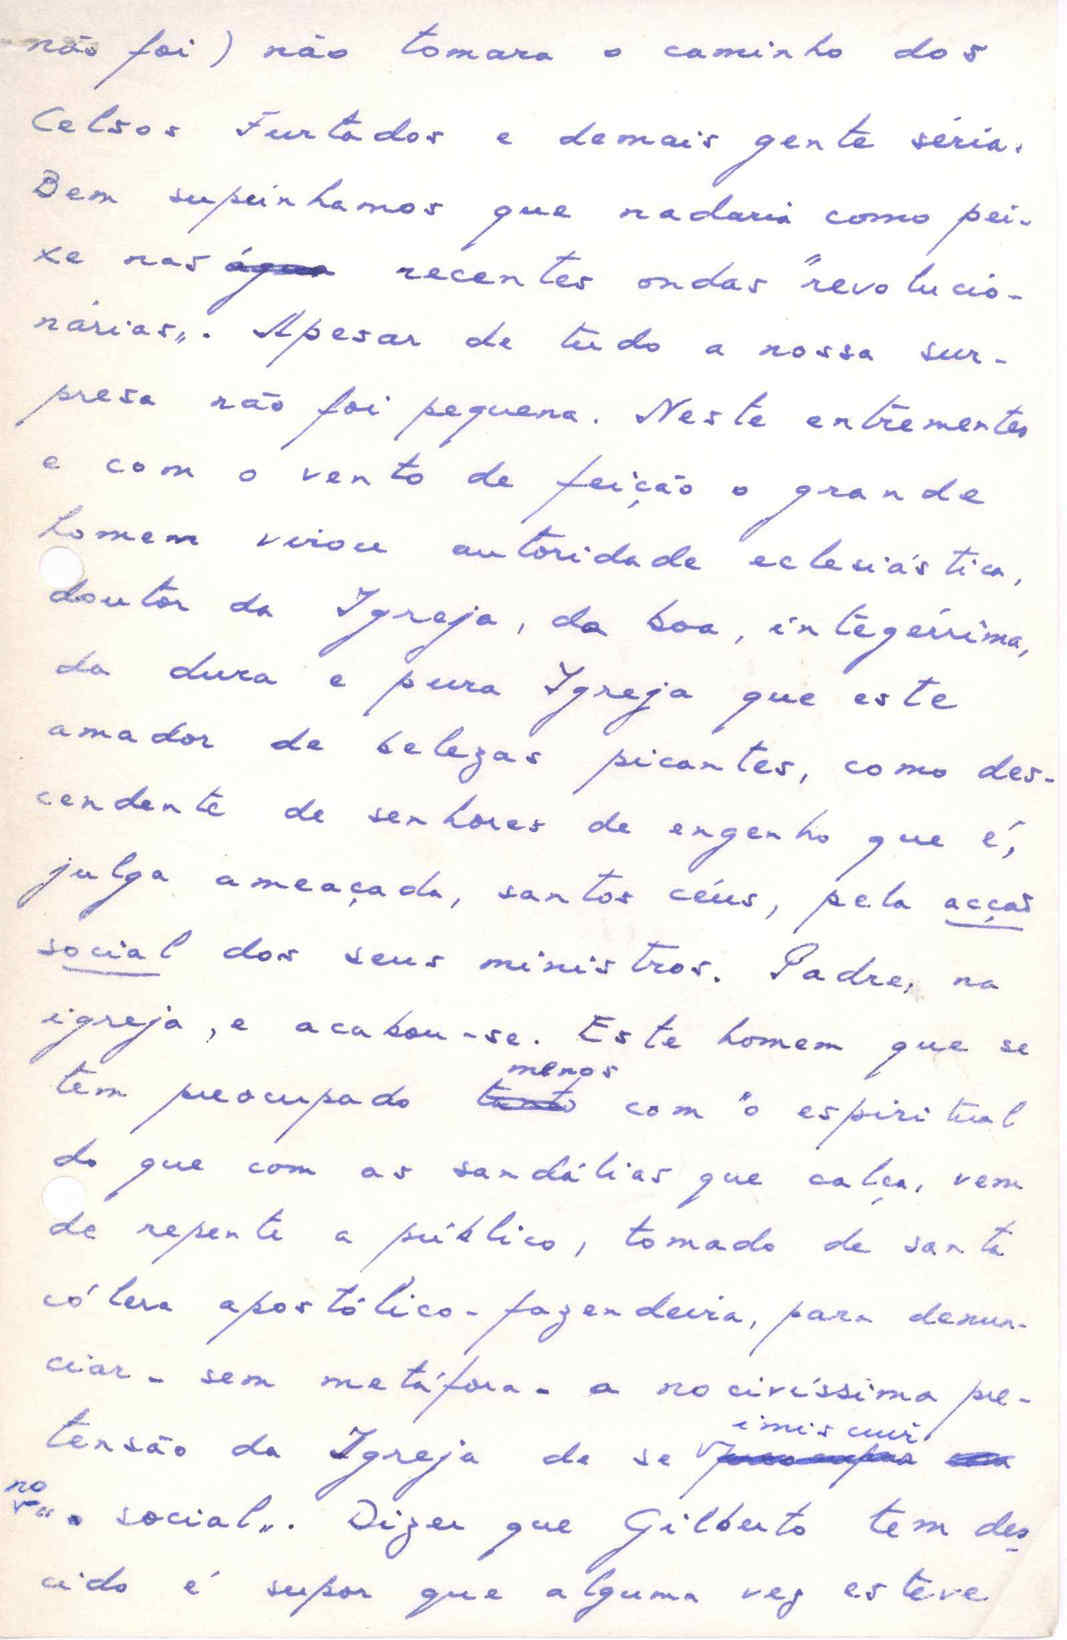 não foi) não tomara o caminho dos
Celsos Furtados e demais gente séria.
Bem supúnhamos que nadaria como pei-
xe nas água recentes ondas "revolucio-
nárias". Apesar de tudo a nossa sur-
presa não foi pequena. Neste entrementes
e com o vento de feição o grande
homem virou autoridade eclesiástica,
doutor da Igreja, da boa, integérrima,
da dura e pura Igreja que este
amador de belezas picantes, como des-
cendente de senhores de engenho que é,
julga ameaçada, santos céus, pela acção
social dos seus ministros. Padre, na
igreja, e acabou-se. Este homem que se
menos
tem preocupado tanto com o espiritual
do que com as sandálias que calça, vem
de repente a público, tomado de santa
cólera apostólico-fazendeira, para denun-
ciar - sem metáfora - a nocivíssima pre-
imiscuir
tensão da Igreja de se preocupar com
no
"o social". Dizer que Gilberto tem des
cido é supor que alguma vez esteve